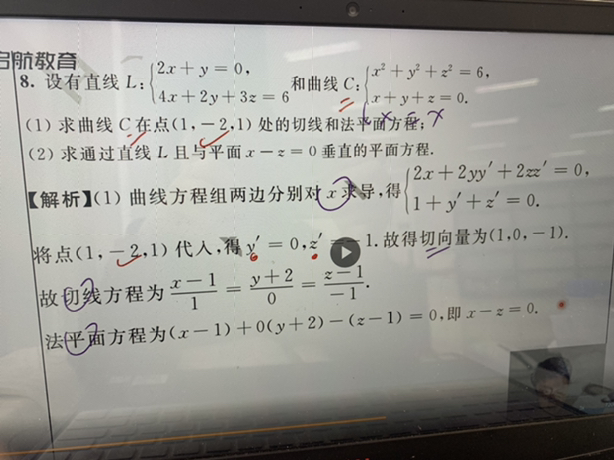 启航教育
8. 设有直线 L: { 2x + y = 0, 4x + 2y + 3z = 6 和曲线 C: { x² + y² + z² = 6, x + y + z = 0.
(1) 求曲线 C 在点(1, －2,1) 处的切线和法平面方程;
(2) 求通过直线 L 且与平面 x － z = 0 垂直的平面方程.
【解析】(1) 曲线方程组两边分别对 x 求导, 得 { 2x + 2yy′ + 2zz′ = 0, 1 + y′ + z′ = 0.
将点(1, －2,1) 代入, 得 y′ = 0, z′ = －1. 故得切向量为(1,0, －1).
故切线方程为 (x－1)/1 = (y+2)/0 = (z－1)/－1.
法平面方程为(x－1)+0(y+2)－(z－1) = 0, 即 x－z = 0.